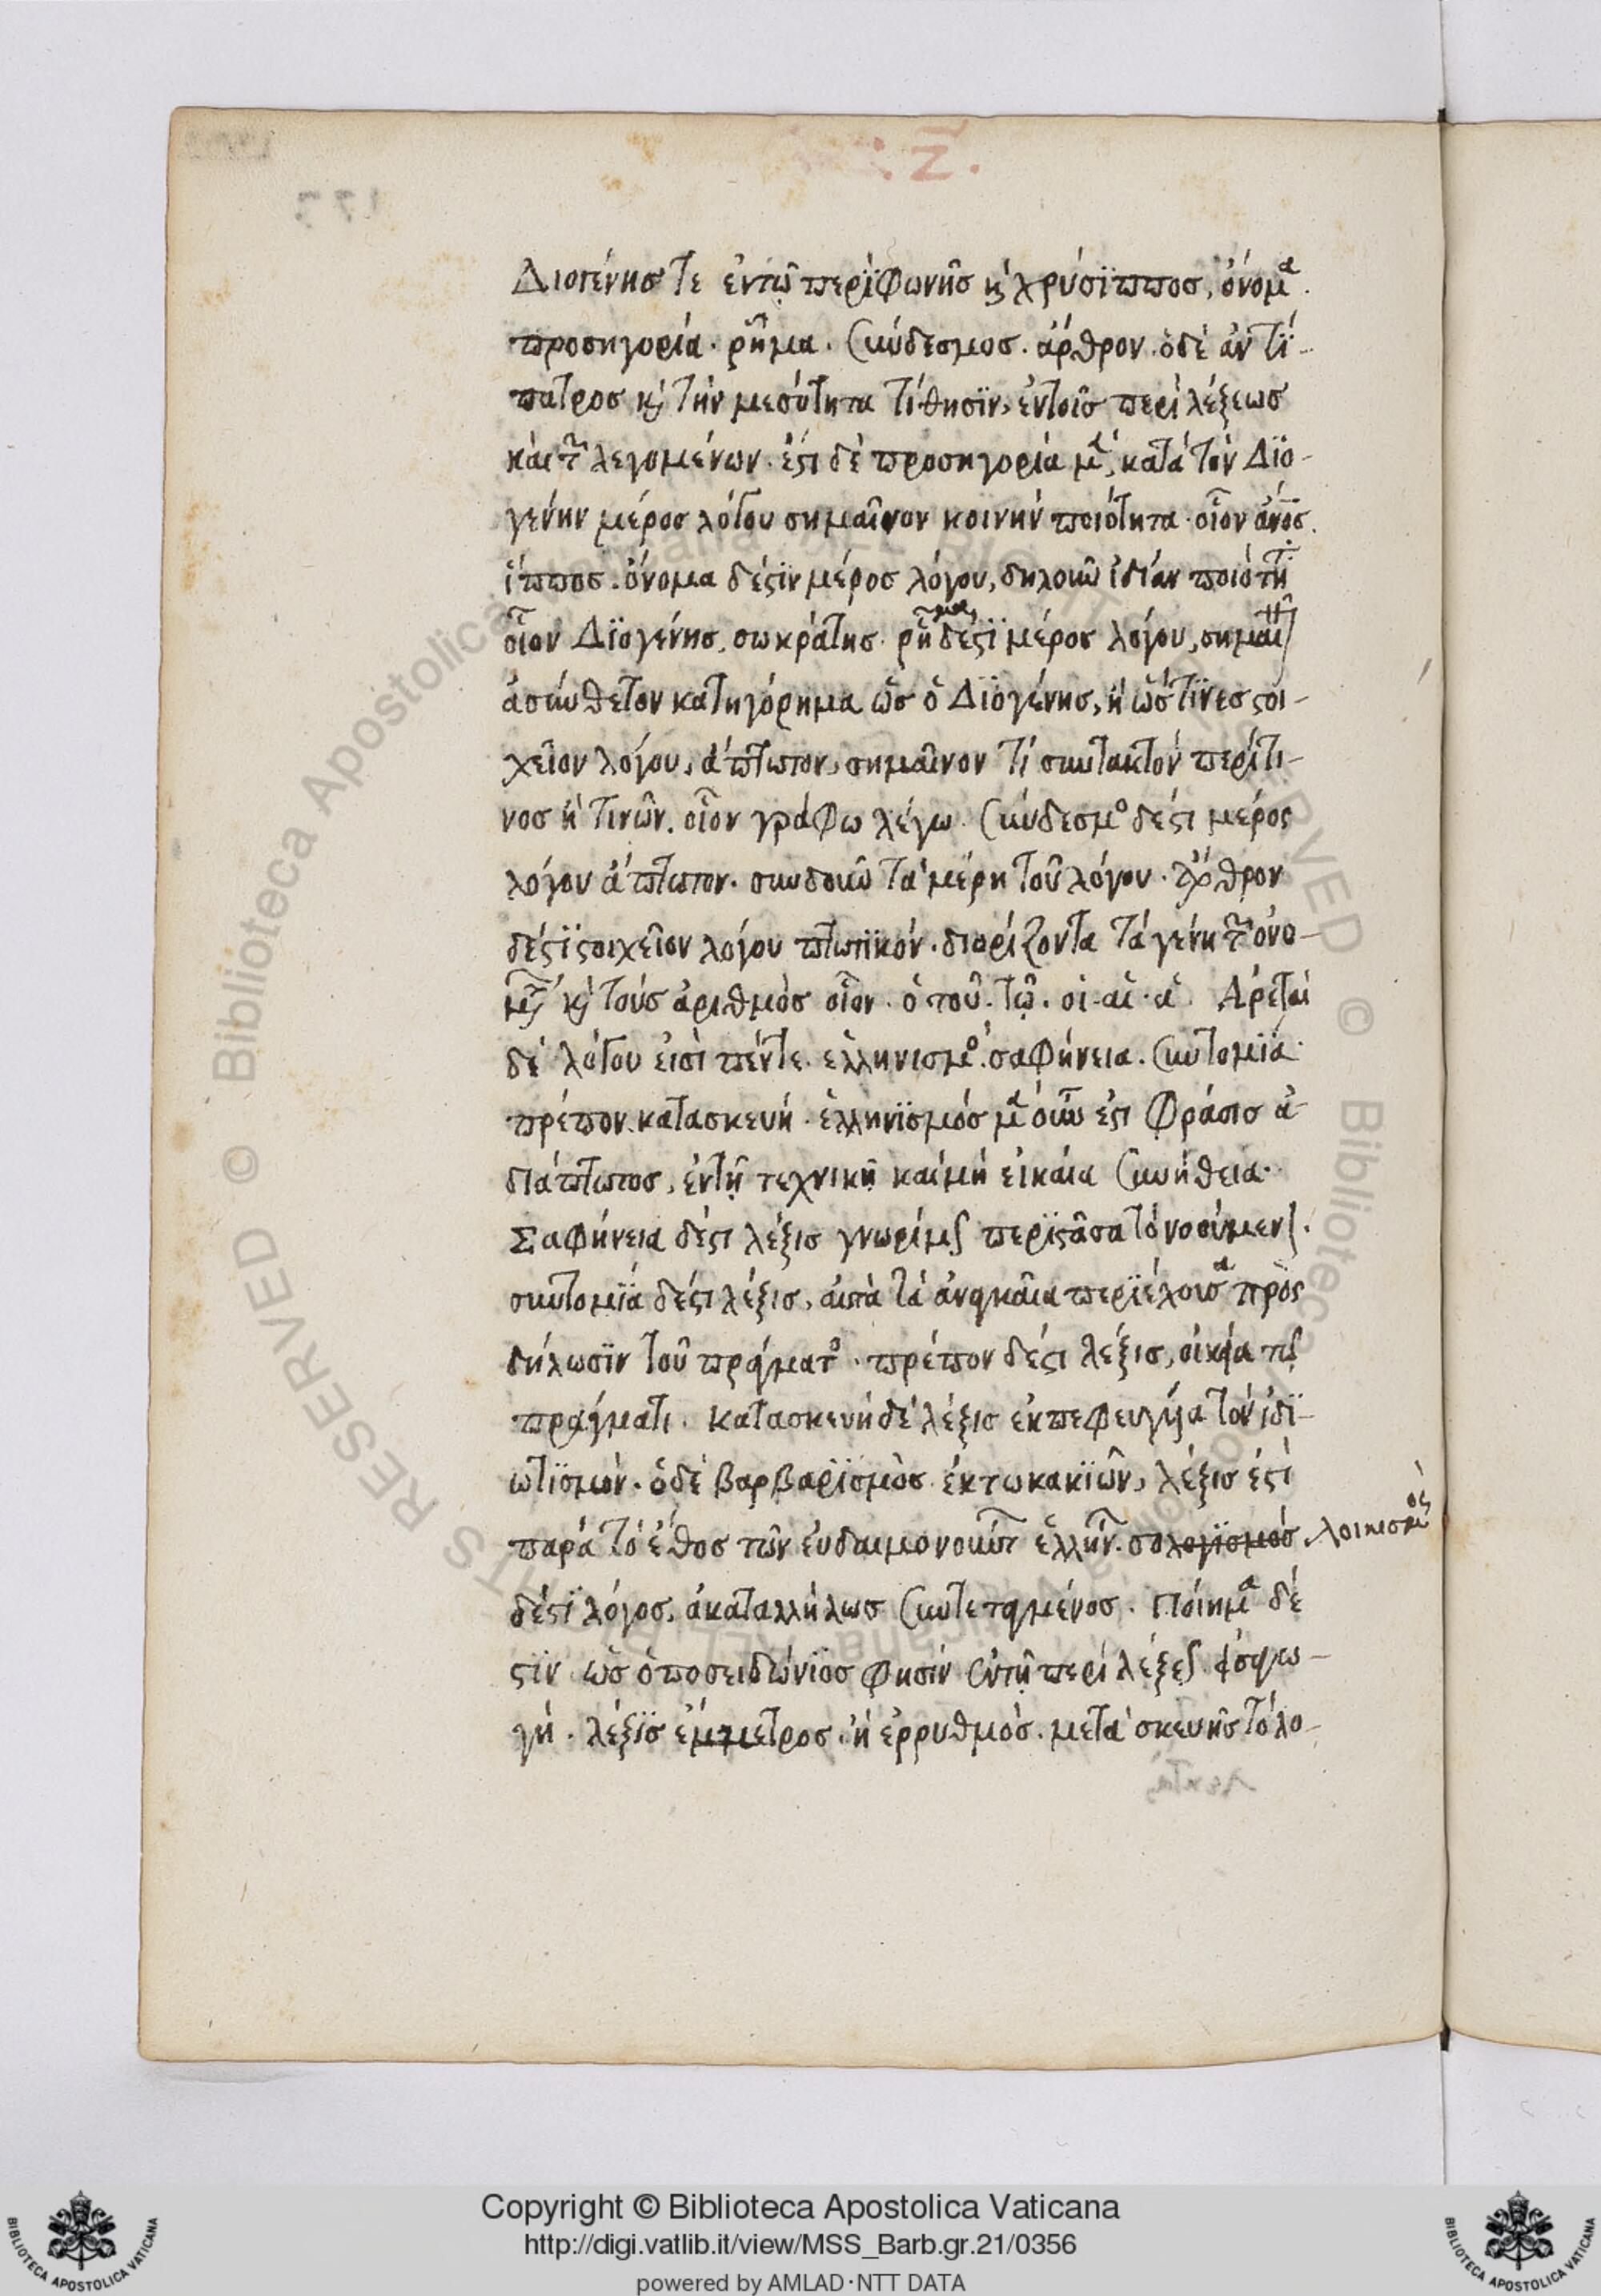 .Ζ.
177
Διογένησ τε ἐντῷ περὶφωνῆσ κ χρύσιππος, ὄνομα.
προσηγορία. ρῆμα. Σύνδεσμοσ. ἄρθρον. ὁδὲ ἀντί-
πατροσ κ τὴν μεσότητα τίθησϊν, ἐντοῖς περὶ λέξεωσ
καὶ τῶν λεγομένων. ἔστι δὲ προσηγορία μὲν, κατὰ τὸν Διο-
γένην μέρος λόγου σημαῖνον κοινὴν ποιότητα. οἷον ἄνος.
ἵππος. ὄνομα δέστϊν μέροσ λόγου, δηλοῦν ἰδίαν ποιότη
οἷον Διογένησ, σωκράτησ. ρῆμα δέστϊ μέροσ λόγου, σημαῖ
ἀσύνθετον κατηγόρημα ὡς ὁ Διογένησ, ἢ ὥς τϊνεσ στοι-
χεῖον λόγου, ἄπτωτον, σημαῖνον τί συντακτὸν περὶτι-
νοσ ἢ τινῶν. οἷον γράφω λέγω. Σύνδεσμο δέστι μέρος
λόγου ἄπτωτον. συνδοῦν τὰ μέρη τοῦ λόγου. ἄρθρον
δέστϊ στοιχεῖον λόγου πτωτϊκόν. διορίζοντα τὰ γένη τῶν ὀνο-
μτ κ τοὺσ ἀριθμὸσ οἷον. ὁ τοῦ. τῷ. οἱ. αἱ. ἁ. Ἀρεταὶ
δὲ λόγου εἰσὶ πέντε. ἑλληνισμο. σαφήνεια. Συντομϊα.
πρέπον. κατασκευή. ἑλληνϊσμόσ μὲν οὖν ἐστι φράσισ ἀ-
διάπτωτοσ, ἐντῇ τεχνικῇ καὶμὴ εἰκαία Συνήθεια.
Σαφήνεια δέστι λέξισ γνωρίμως περϊστᾶσα τὸνοούμεν.
συντομϊα δέστι λέξισ, αὐτὰ τὰ ἀναγκαῖα περϊέχουσα πρὸς
δήλωσϊν τοῦ πράγματο. πρέπον δέστι λέξισ, οἰκεία τῷ
πράγματι. κατασκευὴδὲ λέξισ ἐκπεφευγυῖα τὸν ἰδϊ-
ωτϊσμόν. ὁδὲ βαρβαρϊσμὸσ ἐκτωκακϊῶν, λέξισ ἐστὶ
παρὰ τὸ ἔθος τῶν ἐυδαιμονούντ ἑλλήν. σολογϊσμόσ. λοικισμὸς
δέστϊ λόγοσ, ἀκαταλλήλωσ Συντεταγμένοσ. Ποίημα δέ
στϊν ὡς ὁποσειδώνϊοσ φησὶν ἐντῇ περὶ λέξε εἰσαγω-
γῇ. λέξϊσ ἔμμετροσ. ἢ ἐρρυθμὸσ. μετὰ σκευῆς τὸλο-
λεκτὰς
Copyright © Biblioteca Apostolica Vaticana
http://digi.vatlib.it/view/MSS_Barb.gr.21/0356
powered by AMLAD·NTT DATA